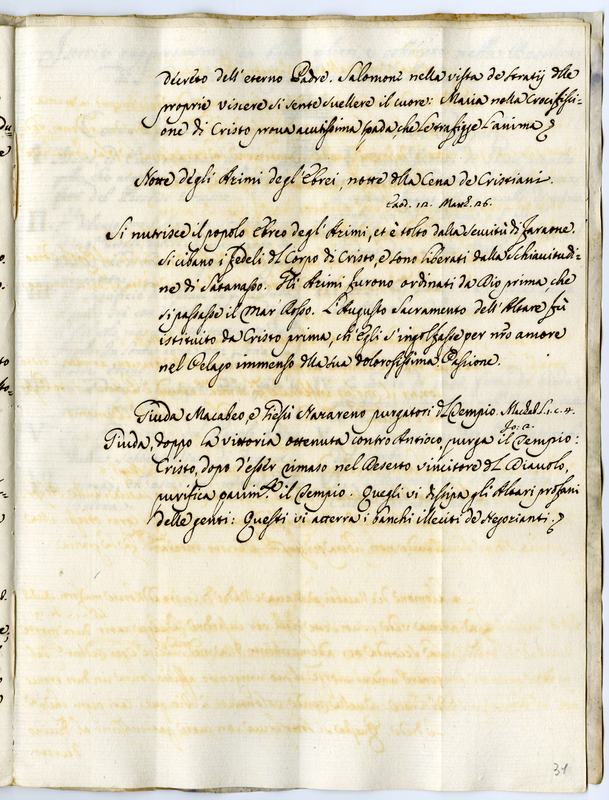 decreto dell'eterno Padre. Salomone nella vista de strazij delle
proprie viscere si sente svellere il cuore: Maria nella Crocifissi=
one di Cristo prova acutissima spada, che le trafigge l'anima.
Notte degli Azimi degl'Ebrei, notte della Cena de Cristiani.
Exod. 12. Matth. 26.
Si nutrisce il popolo Ebreo degl'Azimi, et è tolto dalla servitù di Faraone.
Si cibano i Fedeli del Corpo di Cristo, e sono liberati dalla Schiavitudi=
ne di Satanasso. Gli Azimi furono ordinati da Dio prima che
si passasse il Mar Rosso. L'Augusto Sacramento dell'Altare fù
istituito da Cristo prima, ch'Egli s'ingolfasse per nr̃o amore
nel Pelago immenso della sua dolorosissima Passione.
Giuda Macabeo, e Giesù Nazareno purgatori del Tempio. Machab. L. 1. c. 4.
Jo. 2.
Giuda, doppo la vittoria ottenuta contro Antioco, purga il Tempio:
Cristo, dopo d'esser rimaso nel Deserto vincitore del Diavolo,
purifica parim.te il Tempio. Quegli vi dissipa gli Altari profani
delle genti: Questi vi atterra i banchi illeciti de Negozianti.
31